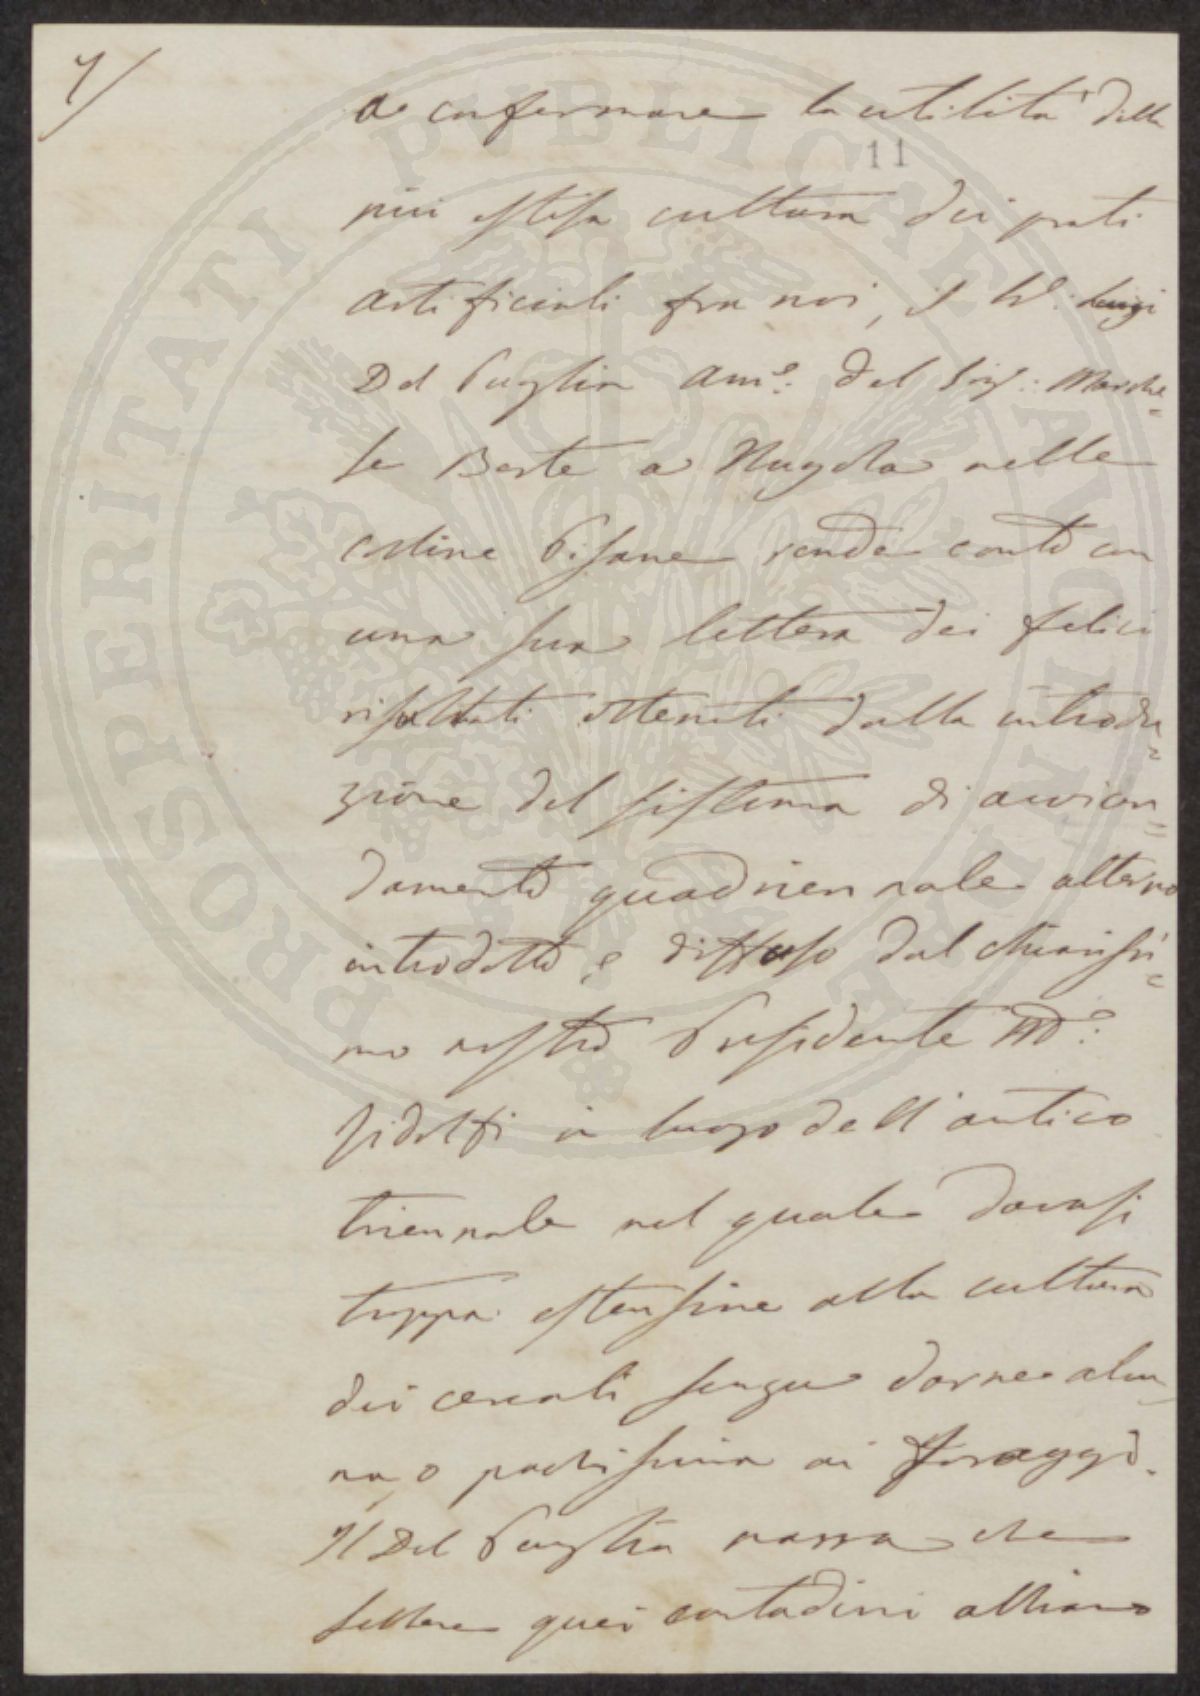 7/
a confermare la utilità della
11
più estesa cultura dei prati
artificiali fra noi, il Sr. Luigi
Del Puglia Ame. del Sigr. Marche=
se Bartè a Nugola nelle
colline Pisane rende conto con
una sua lettera dei felici
risultati ottenuti dalla introdu=
zione del sistema di avvicen=
damento quadriennale alterno
introdotto e diffuso dal chiarissi=
mo nostro Presidente Me.
Ridolfi in luogo dell'antico
triennale nel quale davasi
troppa estensione alla cultura
dei cereali senza darne alcu=
na, o pochissima ai foraggi.
Il Del Puglia narra che
sebbene quei contadini abbiano
PROSPERITATI PVBLICAE AVGENDAE